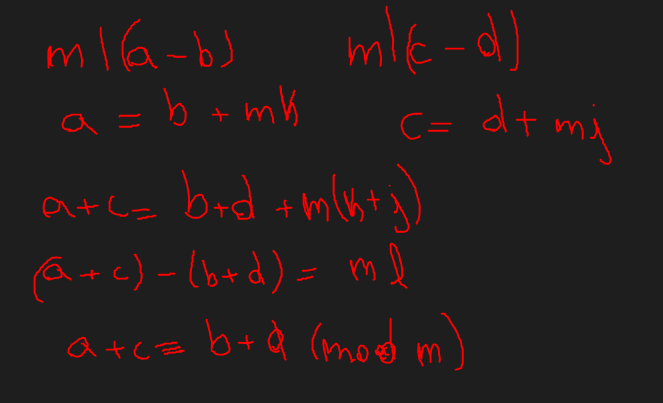 m|(a-b) m|(c-d)
a = b + mk c = d + mj
a+c = b+d + m(k+j)
(a+c) - (b+d) = ml
a+c ≡ b+d (mod m)